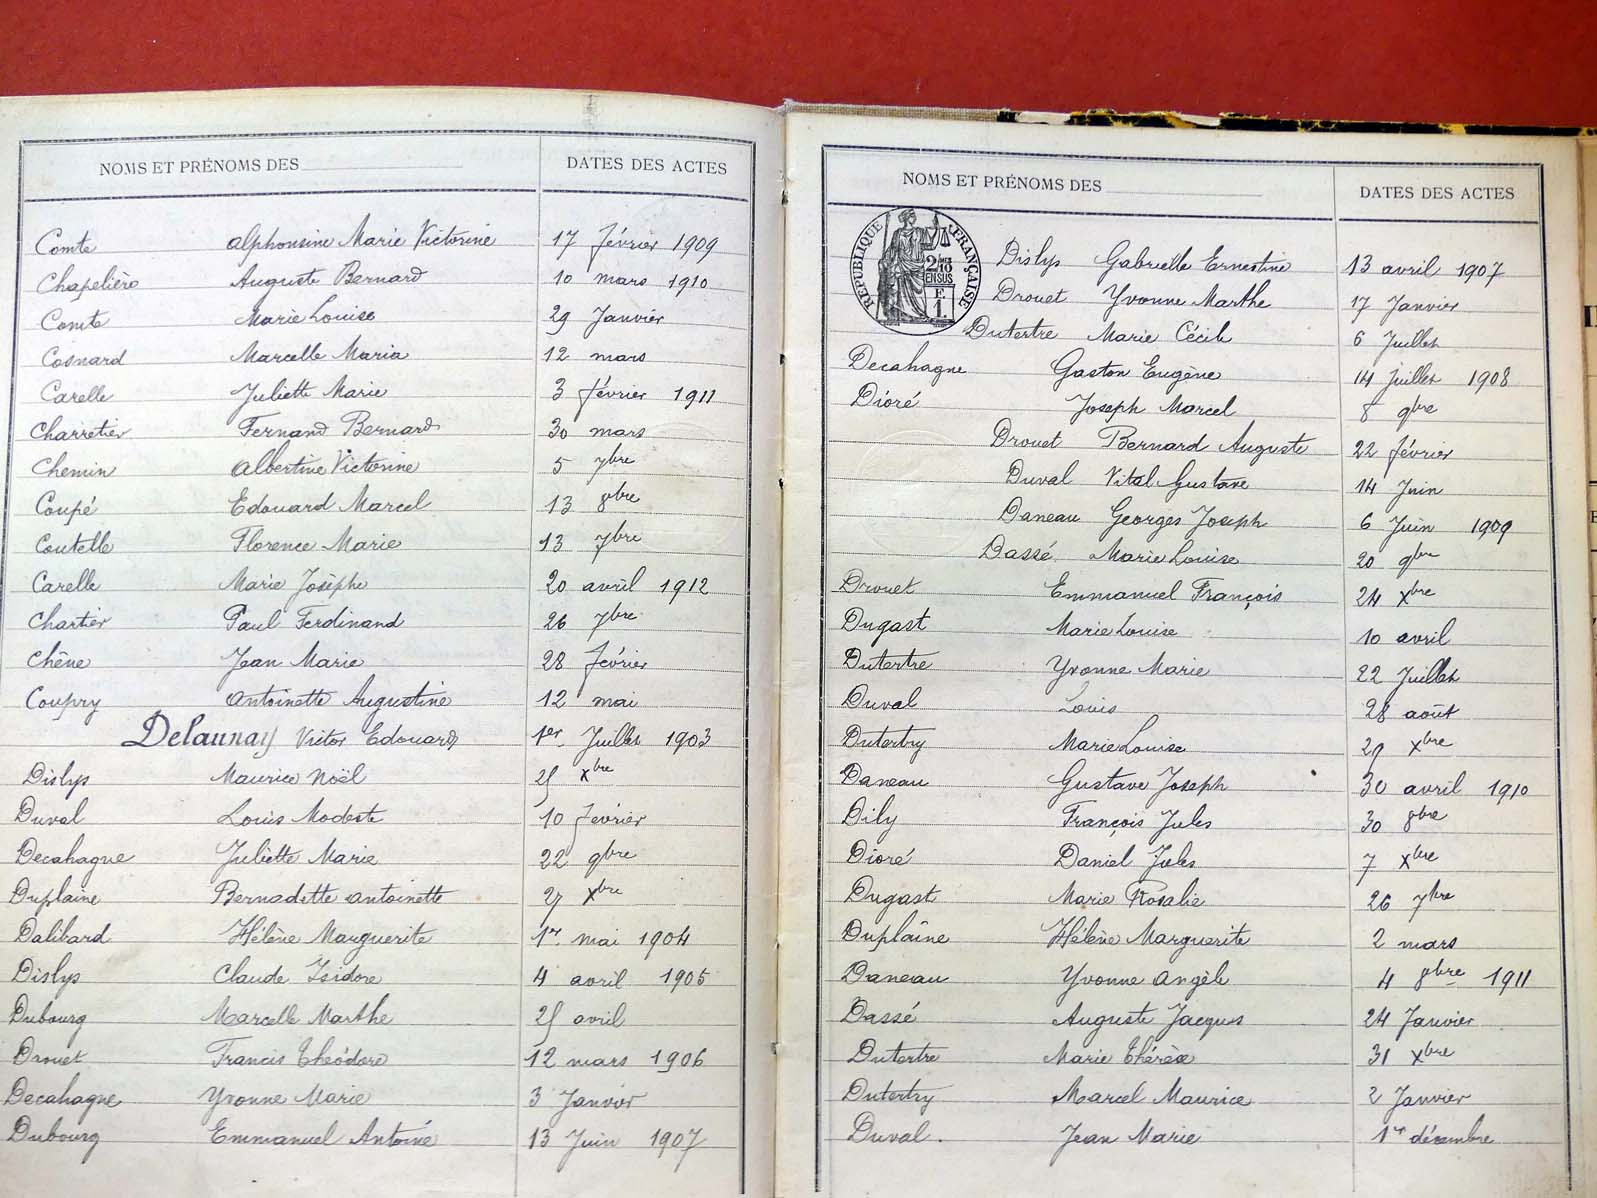 NOMS ET PRÉNOMS DES DATES DES ACTES
Comte Alphonsine Marie Victorine 17 février 1909
Chapelière Auguste Bernard 10 mars 1910
Comte Marie Louise 29 Janvier
Cosnard Marcelle Maria 12 mars
Carelle Juliette Marie 3 février 1911
Charretier Fernand Bernard 30 mars
Chemin Albertine Victorine 5 7bre
Coupé Edouard Marcel 13 8bre
Coutelle Florence Marie 13 7bre
Carelle Marie Josèphe 20 avril 1912
Chartier Paul Ferdinand 26 7bre
Chêne Jean Marie 28 février
Coupry Antoinette Augustine 12 mai
Delaunay Victor Edouard 1er Juillet 1903
Dislys Maurice Noël 25 Xbre
Duval Louis Modeste 10 février
Decahagne Juliette Marie 22 9bre
Duplaine Bernadette Antoinette 27 Xbre
Dalibard Hélène Marguerite 1er mai 1904
Dislys Claude Isidore 4 avril 1905
Dubourg Marcelle Marthe 25 avril
Drouet Francis Théodore 12 mars 1906
Decahagne Yvonne Marie 3 Janvier
Dubourg Emmanuel Antoine 13 Juin 1907
NOMS ET PRÉNOMS DES DATES DES ACTES
RÉPUBLIQUE FRANÇAISE
2/10
EN SUS
F.
1.
Dislys Gabrielle Ernestine 13 avril 1907
Drouet Yvonne Marthe 17 Janvier
Dutertre Marie Cécile 6 Juillet
Decahagne Gaston Eugène 14 Juillet 1908
Dioré Joseph Marcel 8 9bre
Drouet Bernard Auguste 22 février
Duval Vital Gustave 14 Juin
Daneau Georges Joseph 6 Juin 1909
Dassé Marie Louise 20 9bre
Drouet Emmanuel François 24 Xbre
Dugast Marie Louise 10 avril
Dutertre Yvonne Marie 22 Juillet
Duval Louis 28 août
Dutertry Marie Louise Xbre
Daneau Gustave Joseph 30 avril 1910
Dily François Jules 30 8bre
Dioré Daniel Jules 7 Xbre
Dugast Marie Rosalie 26 7bre
Duplaine Hélène Marguerite 2 mars
Daneau Yvonne Angèle 4 8bre 1911
Dassé Auguste Jacques 24 Janvier
Dutertre Marie Thérèse 31 Xbre
Dutertry Marcel Maurice 2 Janvier
Duval. Jean Marie 1er décembre